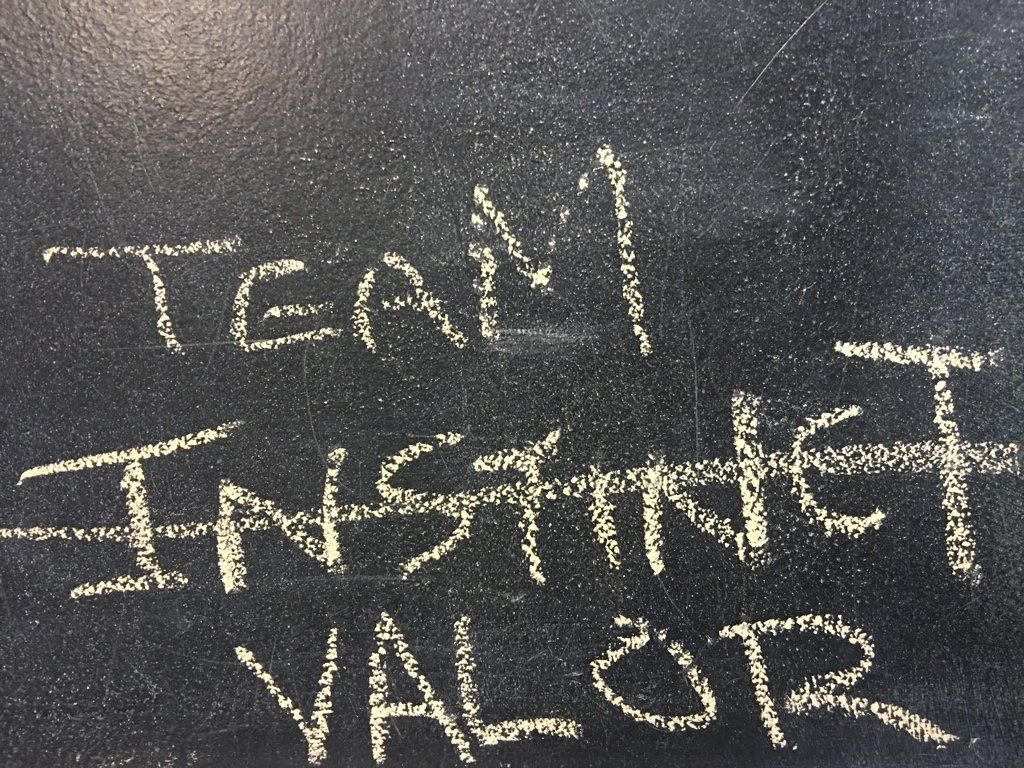 TEAM
INSTINCT
VALOR